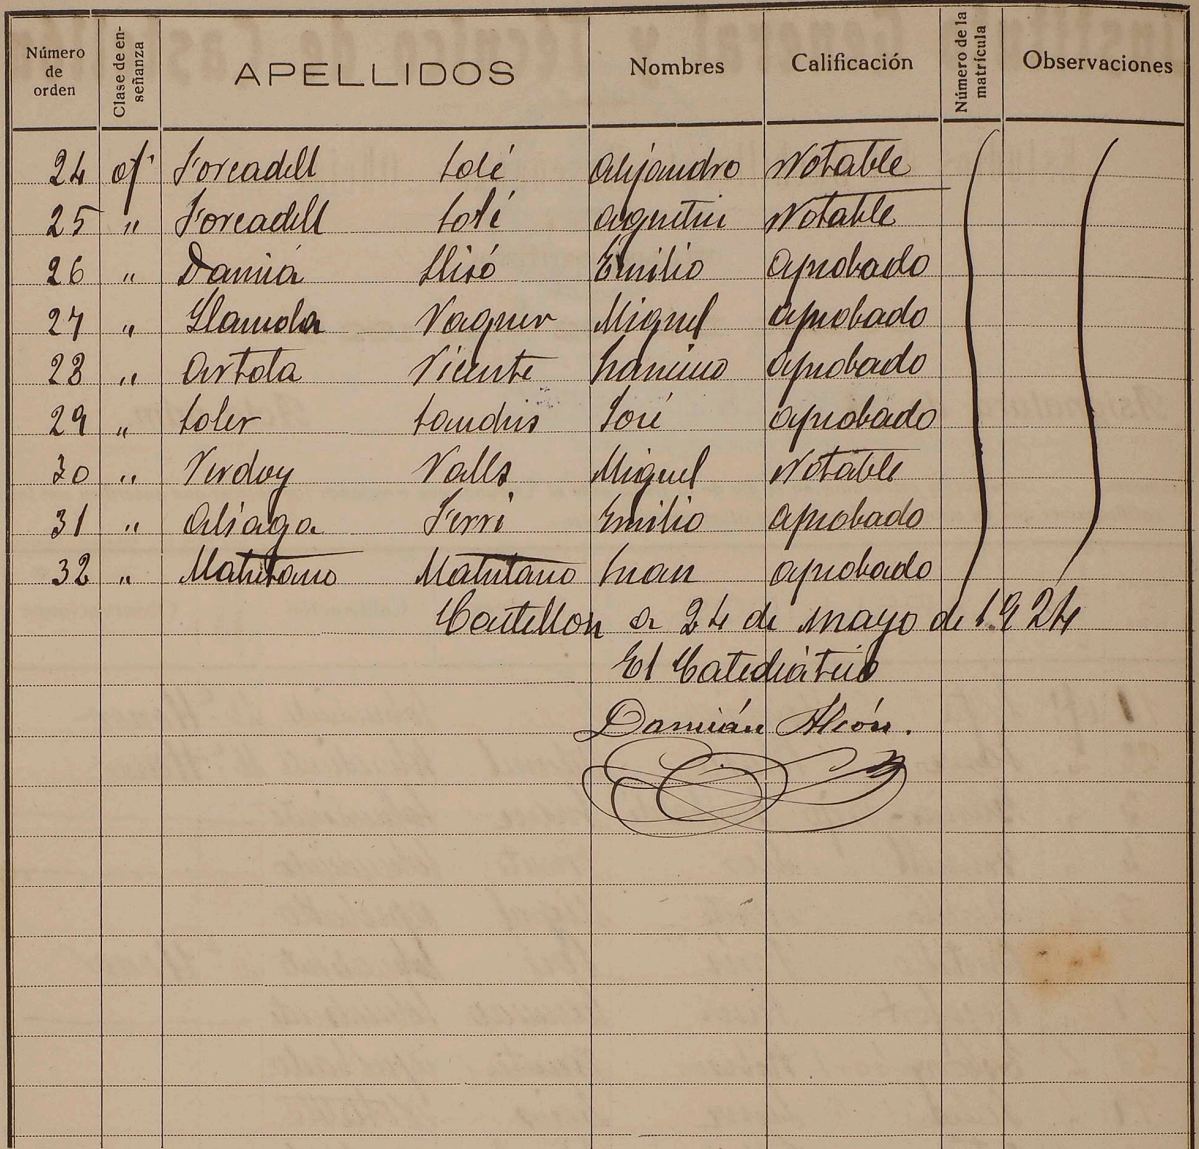 Número de orden Clase de enseñanza APELLIDOS Nombres Calificación Número de la matrícula Observaciones
24 of. Forcadell Solé Alejandro Notable
25 " Forcadell Solé Agustin Notable
26 " Damiá Llisó Emilio Aprobado
27 " Vagner Miguel Aprobado
28 " Artola Vicente Aprobado
29 " Soler José Aprobado
30 " Verdoy Valls Miguel Notable
31 " Aliaga Ferri Emilio Aprobado
32 " Matutano Matutano Juan Aprobado
Castellon a 24 de mayo de 1924
El Catedrático
Damián Alcón.